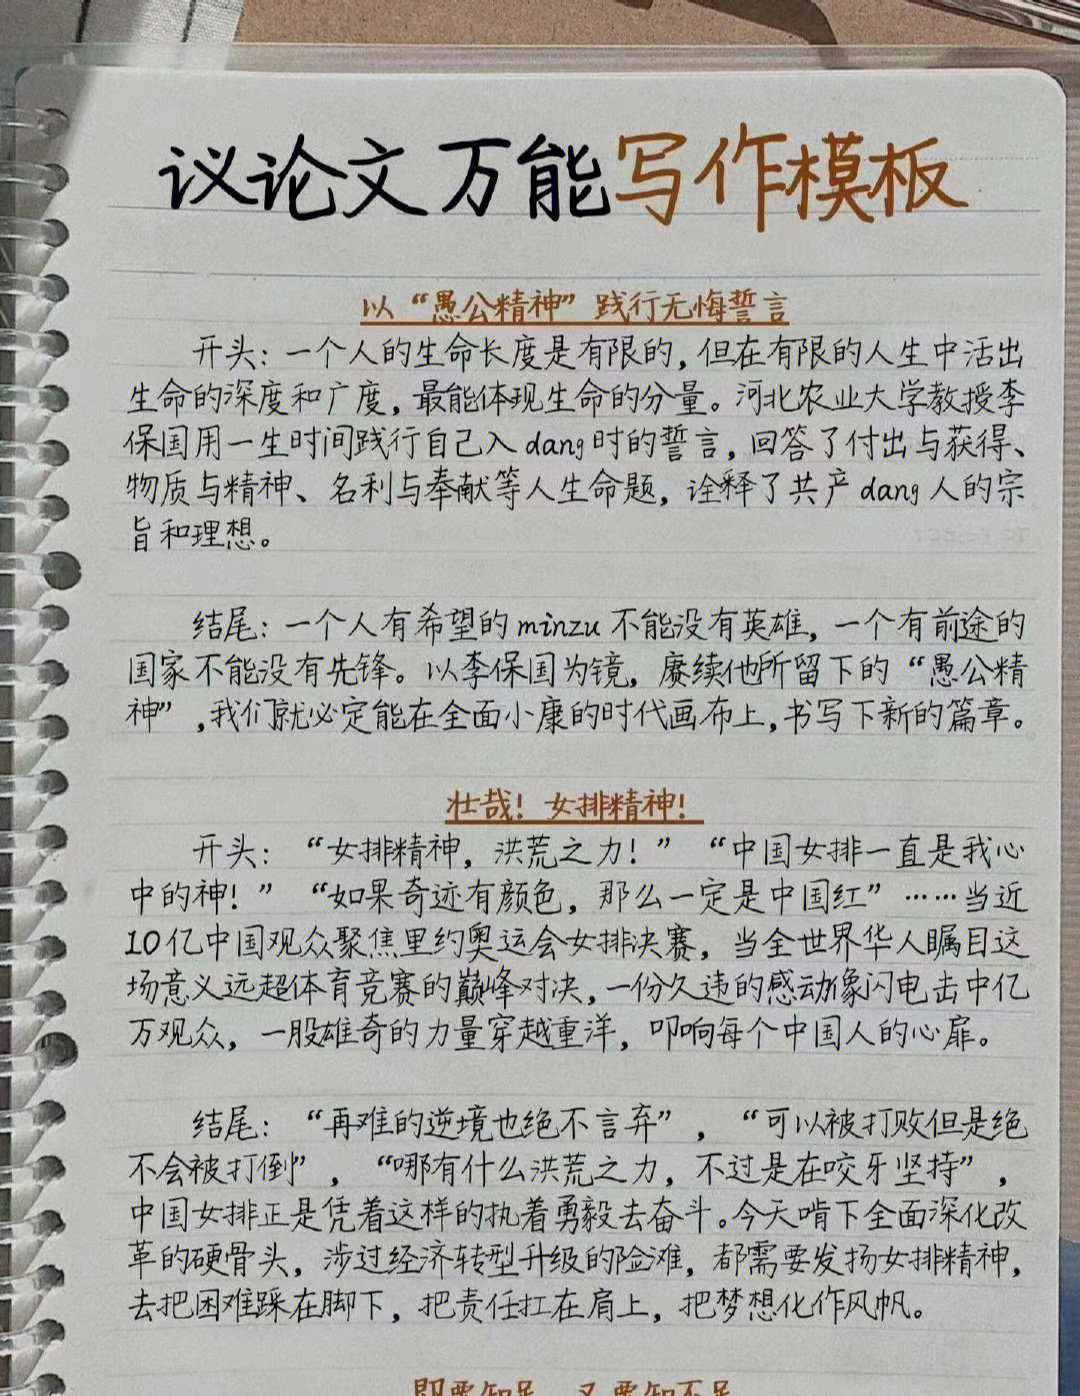 议论文万能写作模板
以“愚公精神”践行无悔誓言
开头：一个人的生命长度是有限的，但在有限的人生中活出
生命的深度和广度，最能体现生命的分量。河北农业大学教授李
保国用一生时间践行自己入dang时的誓言，回答了付出与获得、
物质与精神、名利与奉献等人生命题，诠释了共产dang人的宗
旨和理想。
结尾：一个人有希望的minzu不能没有英雄，一个有前途的
国家不能没有先锋。以李保国为镜，赓续他所留下的“愚公精
神”，我们就必定能在全面小康的时代画布上，书写下新的篇章。
壮哉！女排精神！
开头：“女排精神，洪荒之力！”“中国女排一直是我心
中的神！”“如果奇迹有颜色，那么一定是中国红”……当近
10亿中国观众聚焦里约奥运会女排决赛，当全世界华人瞩目这
场意义远超体育竞赛的巅峰对决，一份久违的感动像闪电击中亿
万观众，一股雄奇的力量穿越重洋，叩响每个中国人的心扉。
结尾：“再难的逆境也绝不言弃”，“可以被打败但是绝
不会被打倒”，“哪有什么洪荒之力，不过是在咬牙坚持”，
中国女排正是凭着这样的执着勇毅去奋斗。今天啃下全面深化改
革的硬骨头，涉过经济转型升级的险滩，都需要发扬女排精神，
去把困难踩在脚下，把责任扛在肩上，把梦想化作风帆。
即要知足，又要知不足